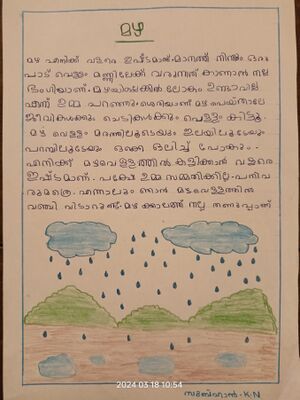 മഴ
മഴ എനിക്ക് വളരെ ഇഷ്ടമാണ്. മാനത്ത് നിന്നും ഒരു
പാട് വെള്ളം മണ്ണിലേക്ക് വരുന്നത് കാണാൻ നല്ല
ഭംഗിയാണ്. മഴയില്ലെങ്കിൽ ലോകം ഉണ്ടാവില്ല
എന്ന് ഉമ്മ പറഞ്ഞു. ശെരിയാണ് മഴ പെയ്താലേ
ജീവികൾക്കും ചെടികൾക്കും വെള്ളം കിട്ടൂ.
മഴ വെള്ളം മരത്തിലൂടെയും ഇലയിലൂടേയും
പറമ്പിലൂടേയും ഒക്കെ ഒലിച്ച് പോകും.
എനിക്ക് മഴവെള്ളത്തിൽ കളിക്കാൻ വളരെ
ഇഷ്ടമാണ്. പക്ഷേ ഉമ്മ സമ്മതിക്കില്ല. പനിവ
രുമത്രെ. എന്നാലും ഞാൻ മഴവെള്ളത്തിൽ
വഞ്ചി വിടാറുണ്ട്. മഴ ക്കാലത്ത് നല്ല തണുപ്പാണ്
2024 03 18 10:54
K.N